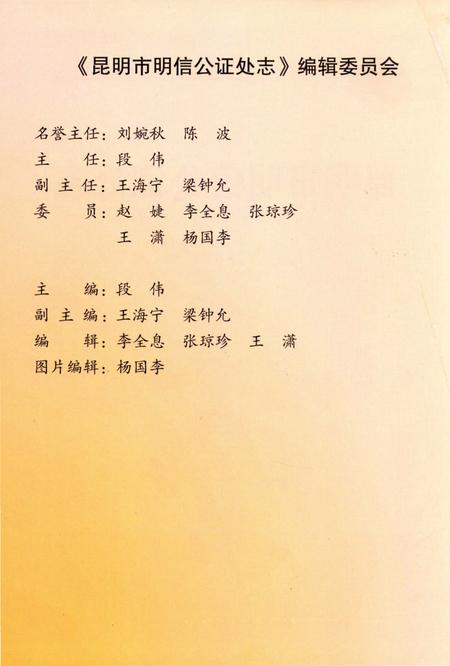 《昆明市明信公证处志》编辑委员会
名誉主任：刘婉秋 陈 波
主 任：段 伟
副 主 任：王海宁 梁钟允
委 员：赵 婕 李全息 张琼珍
王 潇 杨国李
主 编：段 伟
副 主 编：王海宁 梁钟允
编 辑：李全息 张琼珍 王 潇
图片编辑：杨国李